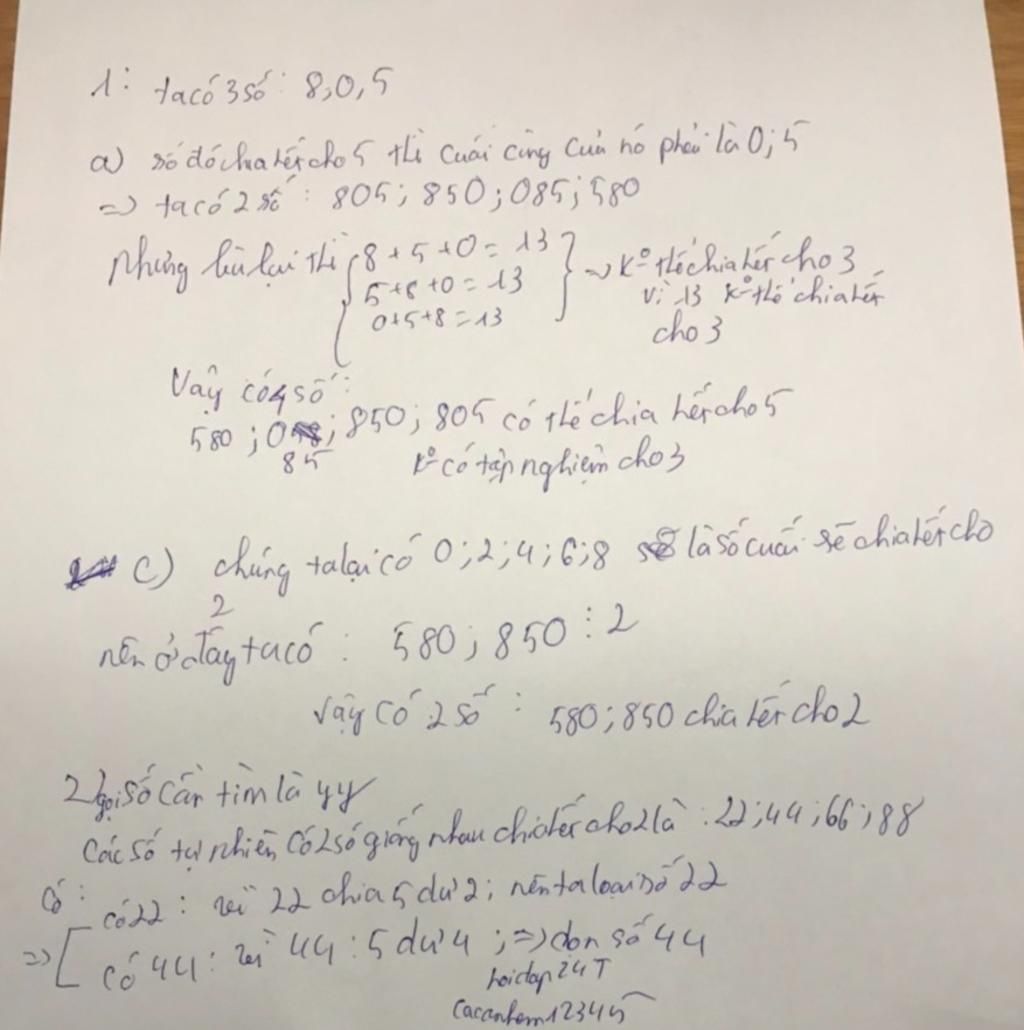 1: ta có 3 số: 8,0,5
a) số đó chia hết cho 5 thì cuối cùng của nó phải là 0; 5
=> ta có 2 số: 805; 850; 085; 580
Nhưng lại thì { 8 + 5 + 0 = 13 } => K° thể chia hết cho 3
5+8+0 = 13 vì 13 K° thể chia hết
0+5+8 = 13 cho 3
Vậy có 4 số:
580; 0 ; 850; 805 có thể chia hết cho 5
85 K° có tập nghiệm cho 3
c) chúng ta lại có 0; 2; 4; 6; 8 là số cuối sẽ chia hết cho
2
nên ở đây ta có: 580; 850 ⋮ 2
Vậy có 2 số: 580; 850 chia hết cho 2
2 gọi số cần tìm là yy
Các số tự nhiên có 2 số giống nhau chia hết cho 2 là: 22; 44; 66; 88
Có: có 22: vì 22 chia 5 dư 2; nên ta loại số 22
=> [ có 44: vì 44 : 5 dư 4; => chọn số 44
hoidap24T
Cacanhem12345